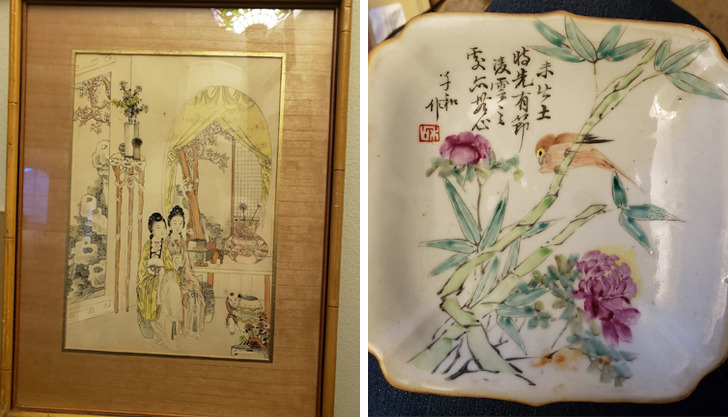 未出土
時先有節
凌雲之
處亦無心
子和作